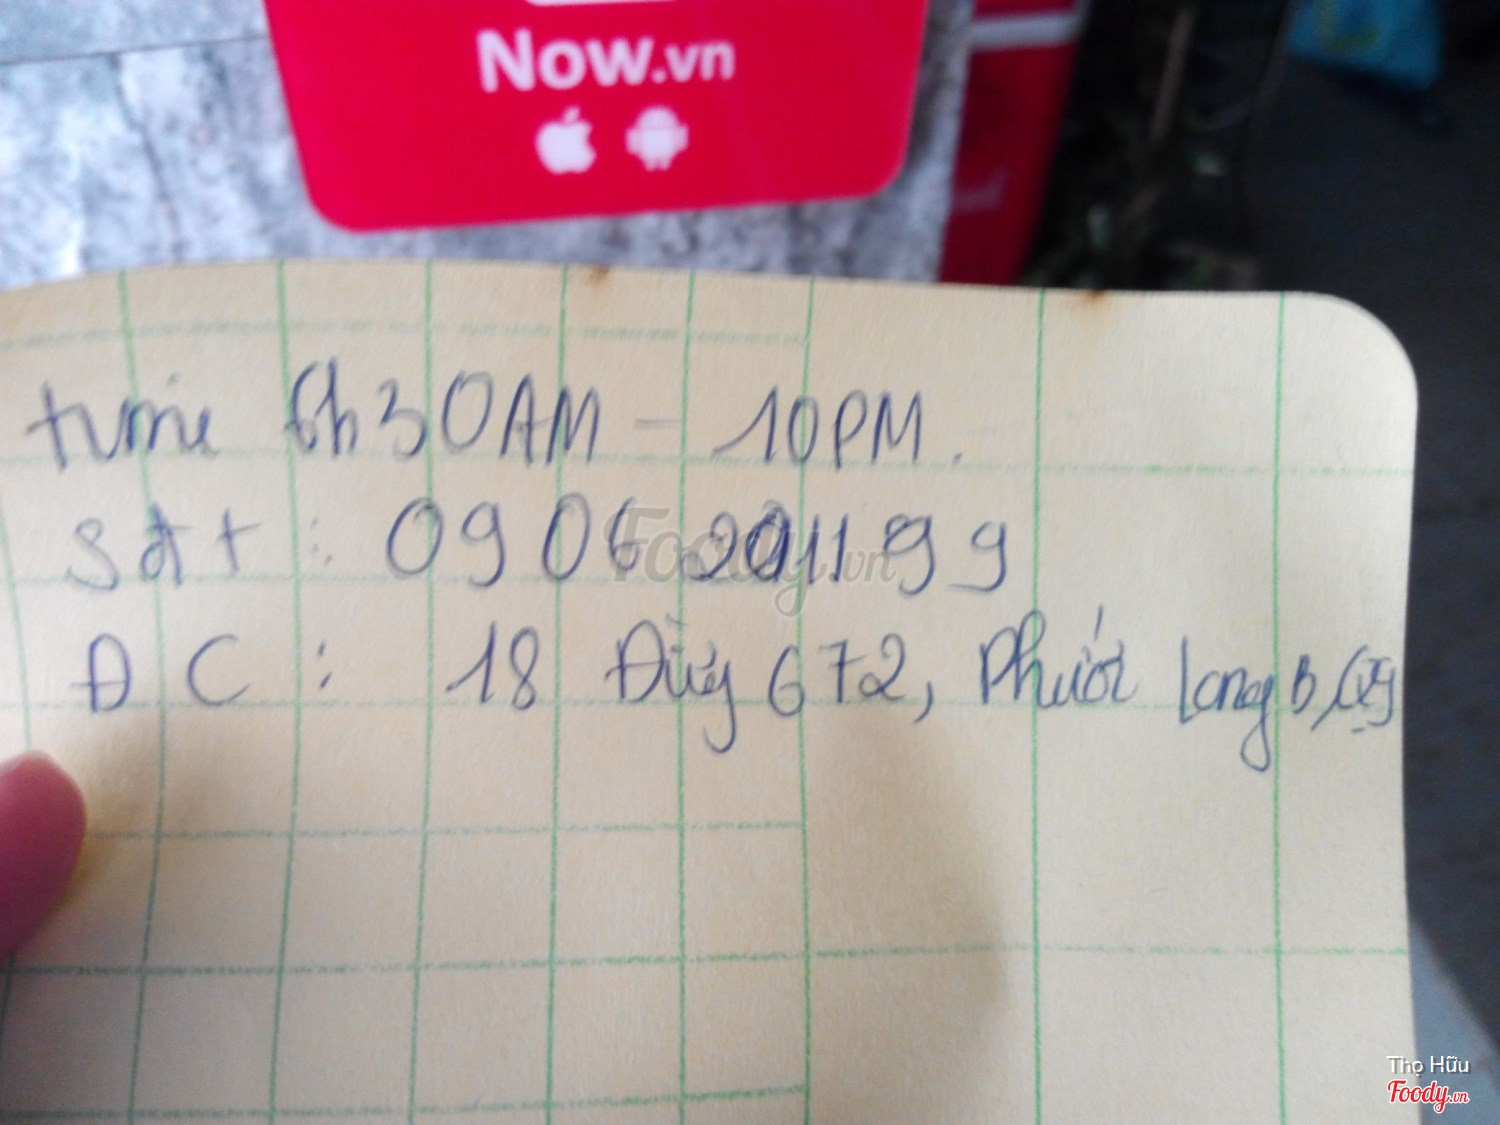 Now.vn
time 6h30AM - 10PM.
sđt : 0906 201199
ĐC : 18 Đừng 672, Phước Long B, Q9
Foody.vn
Thọ Hữu
Foody.vn